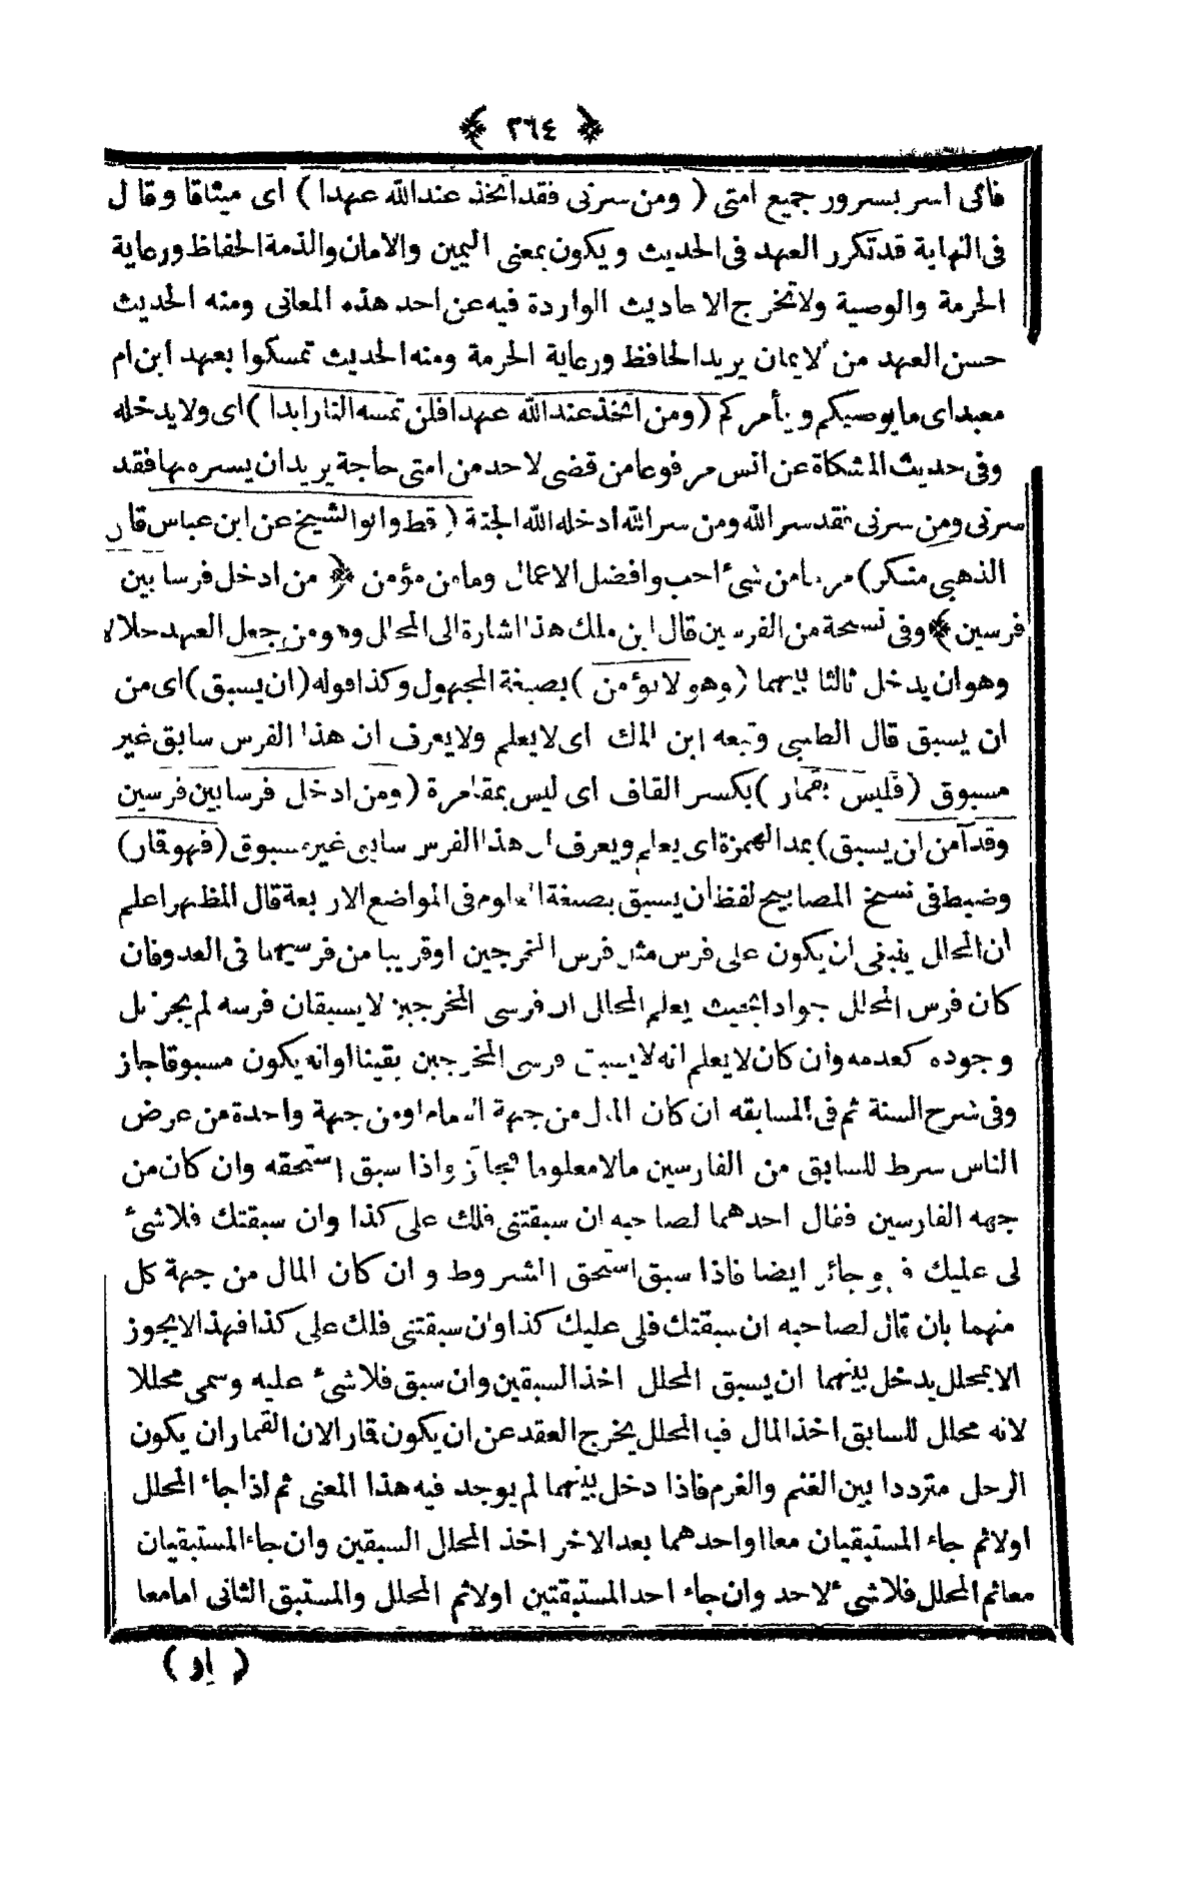 ﴿ ٣٦٤ ﴾
فاكى اسر بسرور جميع امتى ( ومن سرنى فقد اتخذ عند الله عهدا ) اى ميثاقا وقال
فى النهاية قد تكرر العهد فى الحديث ويكون بمعنى اليمين والامان والذمة الحفاظ ورعاية
الحرمة والوصية ولا تخرج الاحاديث الواردة فيه عن احد هذه المعانى ومنه الحديث
حسن العهد من الايمان يريد الحافظ ورعاية الحرمة ومنه الحديث تمسكوا بعهد ابن ام
معبد اى ما يوصيكم ويأمركم ( ومن اتخذ عند الله عهدا فلن تمسه النار ابدا ) اى ولا يدخله
وفى حديث المشكاة عن انس مرفوعا من قضى لاحد من امتى حاجة يريد ان يسره بها فقد
سرنى ومن سرنى فقد سر الله ومن سر الله ادخله الله الجنة ( قط وابو الشيخ عن ابن عباس قال
الذهبى منكر ) مر ما من شىء احب وافضل الاعمال وما من مؤمن ﴿ من ادخل فرسا بين
فرسين ﴾ وفى نسخة من الفرسين قال ابن ملك هذا اشارة الى المحلل وهو من جعل العهد حلالا
وهو ان يدخل ثالثا بينهما ( وهو لا يؤمن ) بصيغة المجهول وكذا قوله ( ان يسبق ) اى من
ان يسبق قال الطيبى وتبعه ابن الملك اى لا يعلم ولا يعرف ان هذا الفرس سابق غير
مسبوق ( فليس بقمار ) بكسر القاف اى ليس بمقامرة ( ومن ادخل فرسا بين فرسين
وقد آمن ان يسبق ) بمد الهمزة اى يعلم ويعرف ان هذا الفرس سابق غير مسبوق ( فهو قار )
وضبط فى نسخ المصابيح لفظ ان يسبق بصيغة المعلوم فى المواضع الاربعة قال المظهر اعلم
ان المحلل ينبغى ان يكون على فرس مثل فرس المخرجين او قريبا من فرسيهما فى العدو فان
كان فرس المحلل جوادا بحيث يعلم المحلل ان فرسى المخرجين لا يسبقان فرسه لم يجز بل
وجوده كعدمه وان كان لا يعلم انه لا يسبق فرسى المخرجين يقينا او انه يكون مسبوقا جاز
وفى شرح السنة ثم فى المسابقه ان كان المال من جهة الامام او من جهة واحدة من عرض
الناس سرط للسابق من الفارسين مالا معلوما فجاز واذا سبق استحقه وان كان من
جهه الفارسين فقال احدهما لصاحبه ان سبقتنى فلك على كذا وان سبقتك فلا شىء
لى عليك فهو جائز ايضا فاذا سبق استحق الشروط وان كان المال من جهة كل
منهما بان قال لصاحبه ان سبقتك فلى عليك كذا وان سبقتنى فلك على كذا فهذا لا يجوز
الا بمحلل يدخل بينهما ان يسبق المحلل اخذ السبقين وان سبق فلا شىء عليه وسمى محللا
لانه محلل للسابق اخذ المال فبالمحلل يخرج العقد عن ان يكون قارا لان القمار ان يكون
الرحل مترددا بين الغنم والغرم فاذا دخل بينهما لم يوجد فيه هذا المعنى ثم اذا جاء المحلل
اولا ثم جاء المستبقيان معا او احدهما بعد الاخر اخذ المحلل السبقين وان جاء المستبقيان
معا ثم المحلل فلا شىء لاحد وان جاء احد المستبقتين اولا ثم المحلل والمستبق الثانى اما معا
( او )